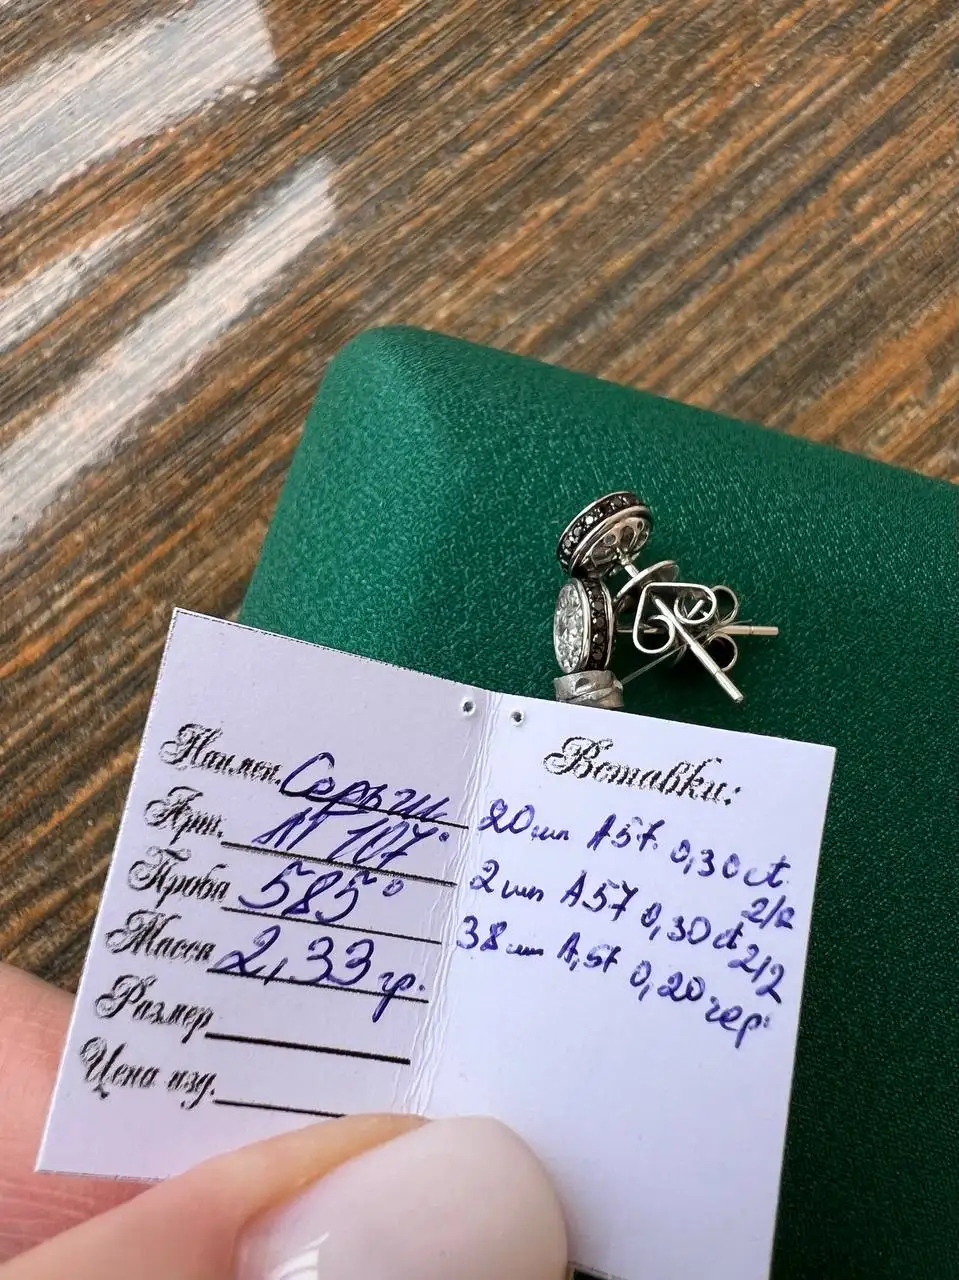 Наимен. Серьги
Арт. АП 107°
Проба 585°
Масса 2,33 гр.
Размер
Цена изд.
Вставки:
20 шт А57. 0,30 ct. 2/2
2 шт А57 0,30 ct 2/2
38 шт А,57 0,20 чер.